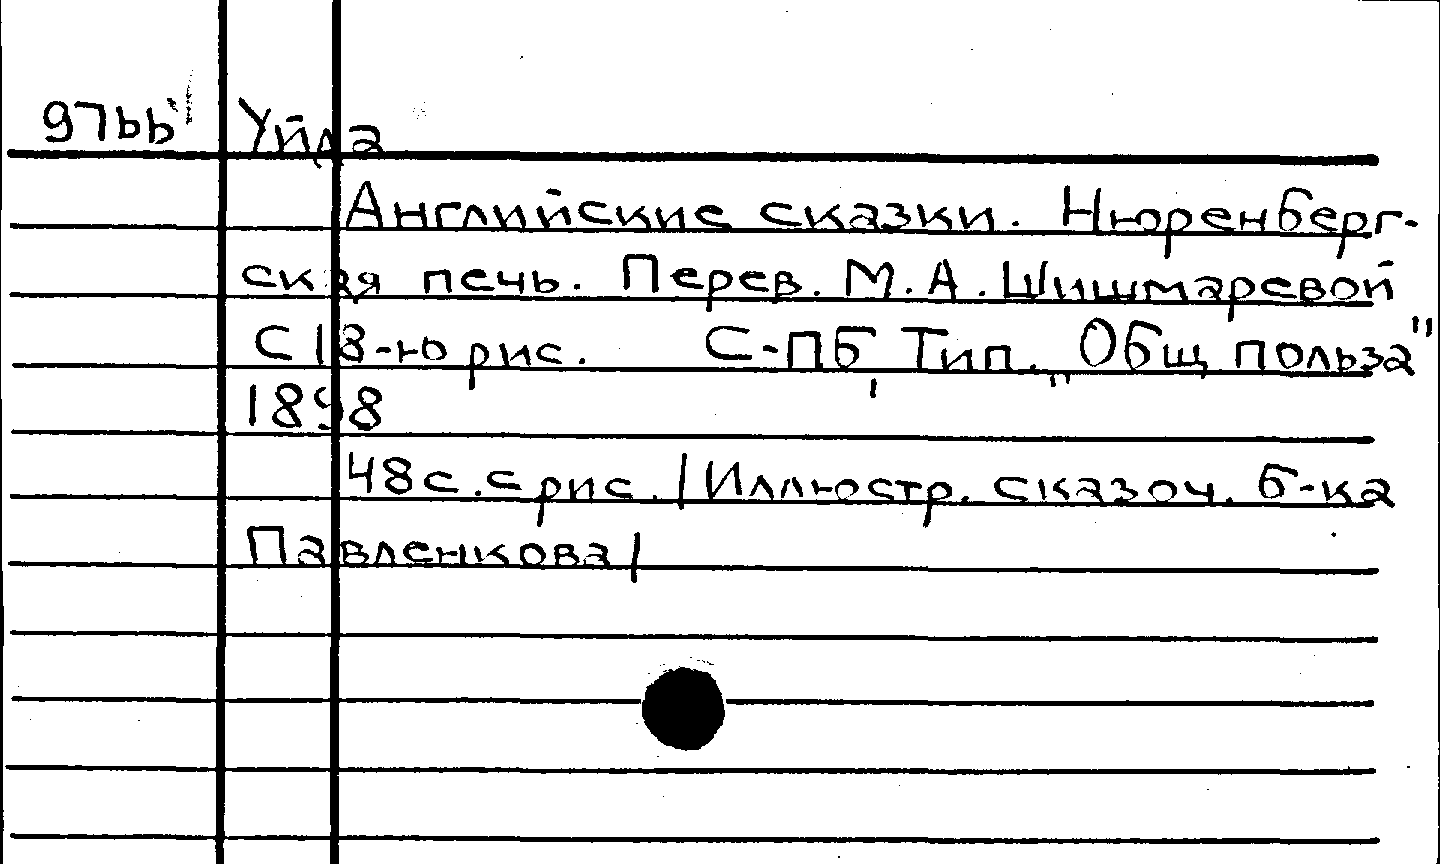 97ьь Уйда
Английские сказки. Нюренберг-
ская печь. Перев. М.А. Шишмаревой
С 18-ю рис. С-ПБ, Тип. „Общ польза"
1898
48с. с рис. /Иллюстр. сказоч. б-ка
Павленкова/